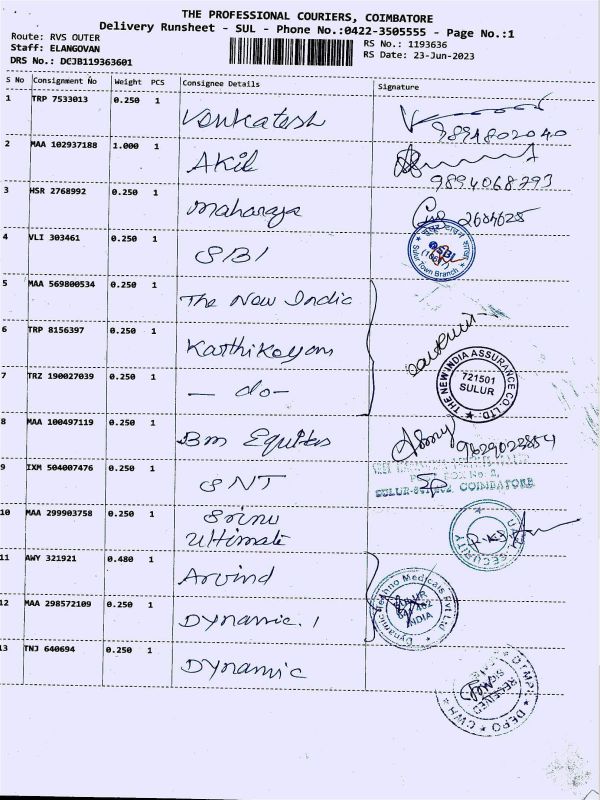 THE PROFESSIONAL COURIERS, COIMBATORE
Delivery Runsheet - SUL - Phone No.:0422-3505555 - Page No.:1
Route: RVS OUTER
Staff: ELANGOVAN
DRS No.: DCJB119363601
RS No.: 1193636
RS Date: 23-Jun-2023
S No Consignment No Weight PCS Consignee Details Signature
1 TRP 7533013 0.250 1 Venkatesh
9894802040
2 MAA 102937188 1.000 1 Akil
9894068793
3 HSR 2768992 0.250 1 Maharaja
4 VLI 303461 0.250 1 SBI
SBI
Sulur Town Branch
5 MAA 569800534 0.250 1 The New India
6 TRP 8156397 0.250 1 Karthikeyan
7 TRZ 190027039 0.250 1 - do -
THE NEW INDIA ASSURANCE CO. LTD.
721501
SULUR
8 MAA 100497119 0.250 1 Bm Equitas
9629023854
9 IXM 504007476 0.250 1 SNT
COIMBATORE
10 MAA 299903758 0.250 1 Srinu
Ultimate
SECURITY
11 AWY 321921 0.480 1 Arvind
12 MAA 298572109 0.250 1 Dynamic. 1
Dynamic Techno Medicals Pvt Ltd
SULUR
641 402
INDIA
13 TNJ 640694 0.250 1 Dynamic
RECEIVED
DEPO
CWH